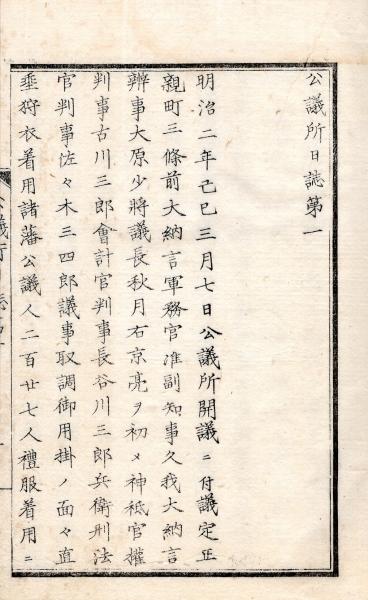 公議所日誌第一
明治二年己巳三月七日公議所開議ニ付議定正
親町三條前大納言軍務官准副知事久我大納言
辨事大原少將議長秋月右京亮ヲ初メ神祗官權
判事古川三郎會計官判事長谷川三郎兵衛刑法
官判事佐々木三四郎議事取調御用掛ノ面々直
垂狩衣着用諸藩公議人二百廿七人禮服着用ニ